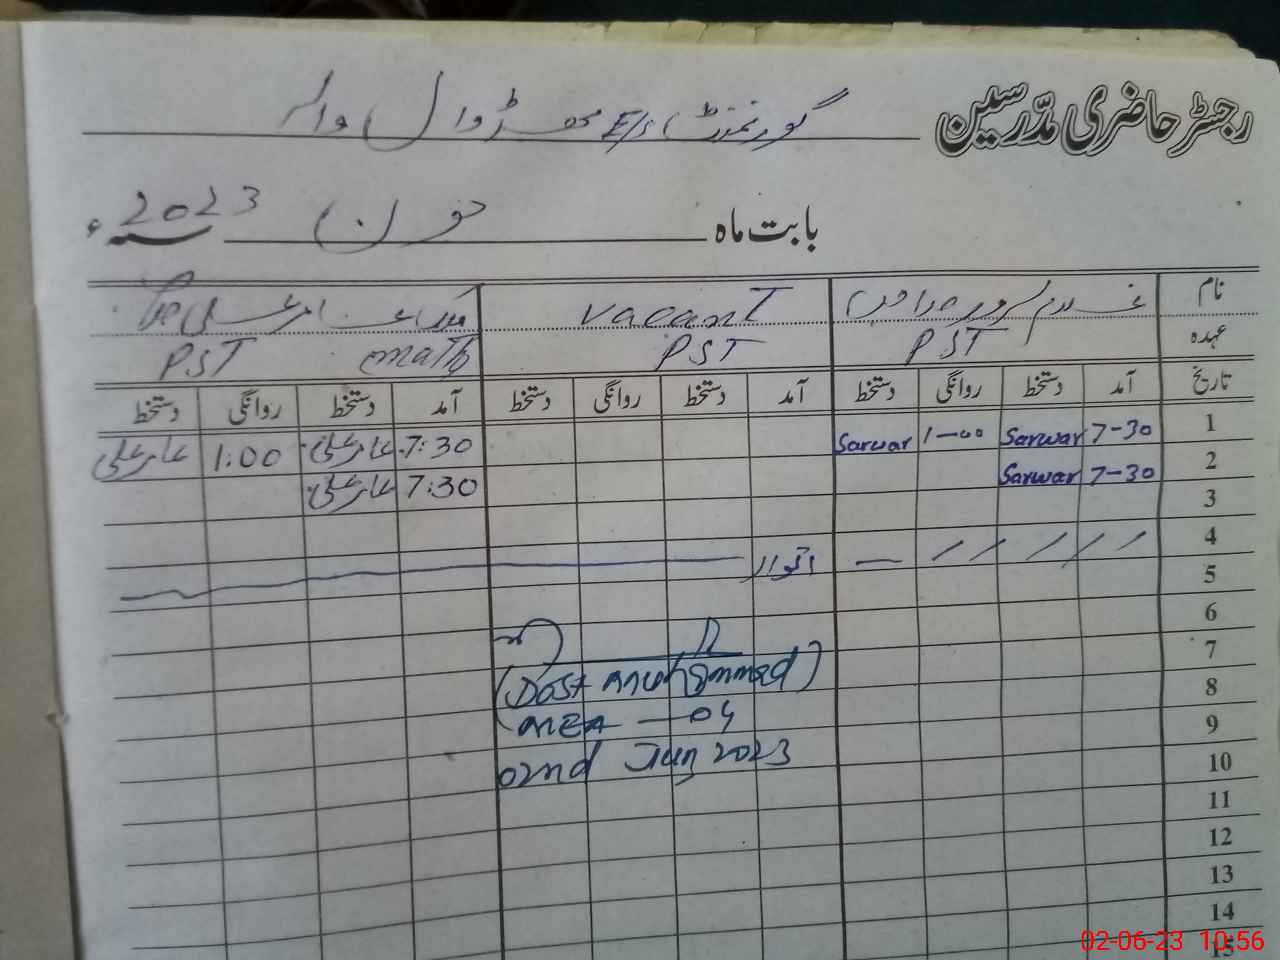 رجسٹر حاضری مدّرسین گورنمنٹ E/s
بابت ماہ جون 2023ء
نام غلام سرور vacant
عہدہ PST PST math PST
تاریخ آمد دستخط روانگی دستخط آمد دستخط روانگی دستخط آمد دستخط روانگی دستخط
1 7-30 Sarwar 1-00 Sarwar 7:30 1:00
2 7-30 Sarwar 7:30
3
4 اتوار
5
6
7
(Dost muhammad)
8
MEA - 04
9
02nd Jun 2023
10
11
12
13
14
15
02-06-23 10:56